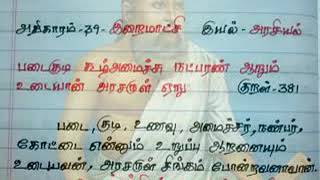 அதிகாரம்-39- இறைமாட்சி இயல்- அரசியல்
படைகுடி கூழ்அமைச்சு நட்பரண் ஆறும்
உடையான் அரசருள் ஏறு குறள்-381
படை, குடி, உணவு, அமைச்சர், நண்பர்,
கோட்டை என்னும் உறுப்பு ஆறனையும்
உடையவன், அரசருள் சிங்கம் போன்றவனாவான்.